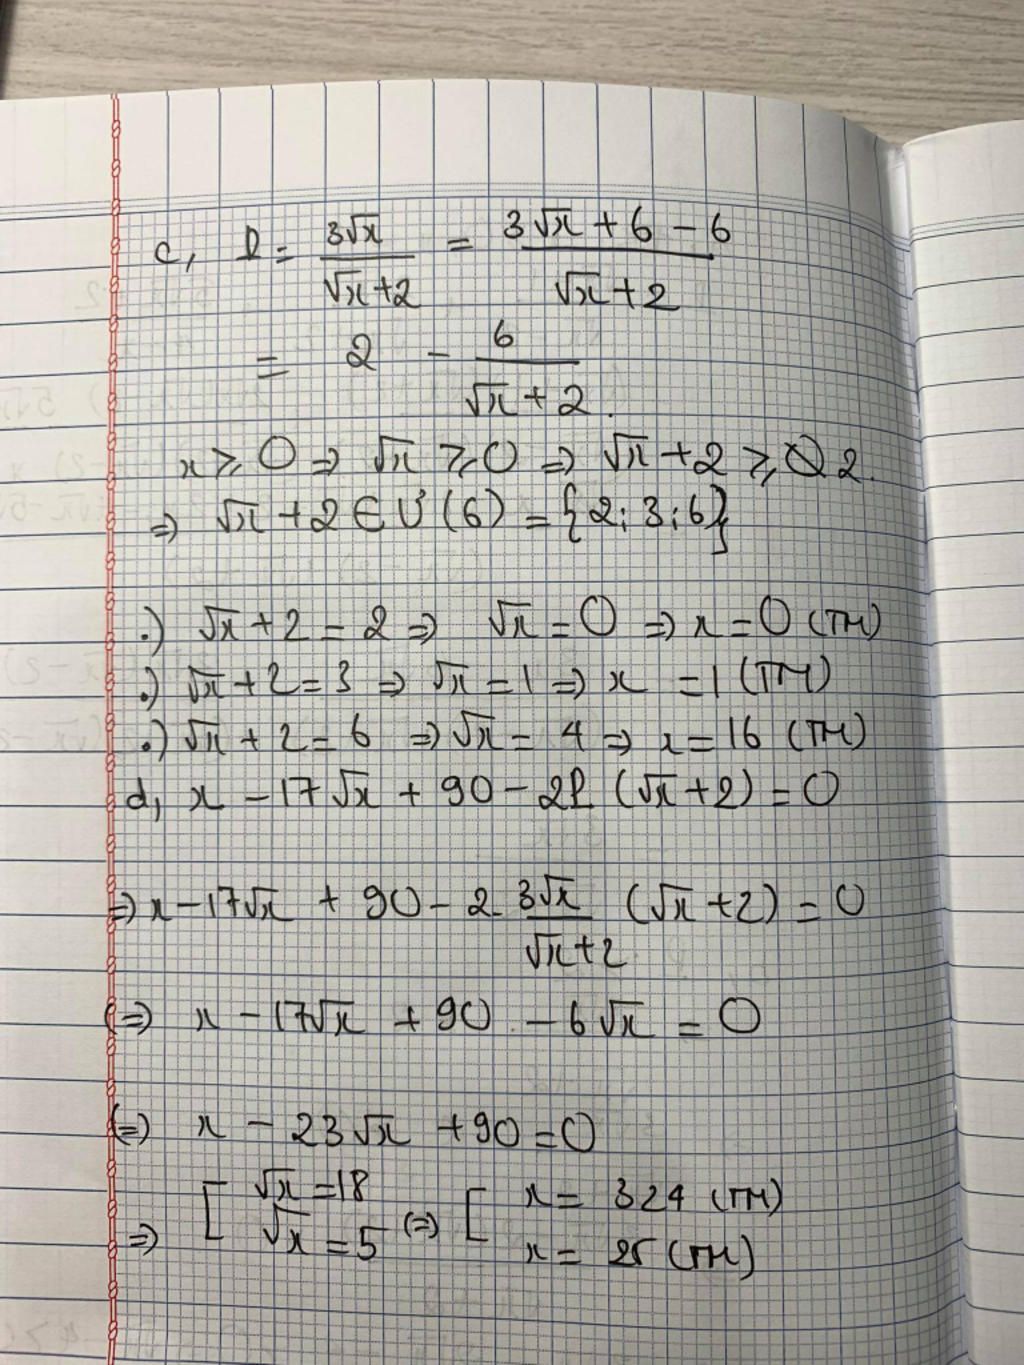 c, P = 3√x / (√x+2) = (3√x + 6 - 6) / (√x+2)
= 2 - 6 / (√x+2).
x ≥ 0 ⇒ √x ≥ 0 ⇒ √x + 2 ≥ 2.
⇒ √x + 2 ∈ Ư(6) = {2; 3; 6}
.) √x + 2 = 2 ⇒ √x = 0 ⇒ x = 0 (TM)
.) √x + 2 = 3 ⇒ √x = 1 ⇒ x = 1 (TM)
.) √x + 2 = 6 ⇒ √x = 4 ⇒ x = 16 (TM)
d, x - 17√x + 90 - 2P (√x+2) = 0
⇒ x - 17√x + 90 - 2. 3√x / (√x+2) (√x+2) = 0
⇔ x - 17√x + 90 - 6√x = 0
⇔ x - 23√x + 90 = 0
⇒ [ √x = 18 ⇔ [ x = 324 (TM)
√x = 5 x = 25 (TM)